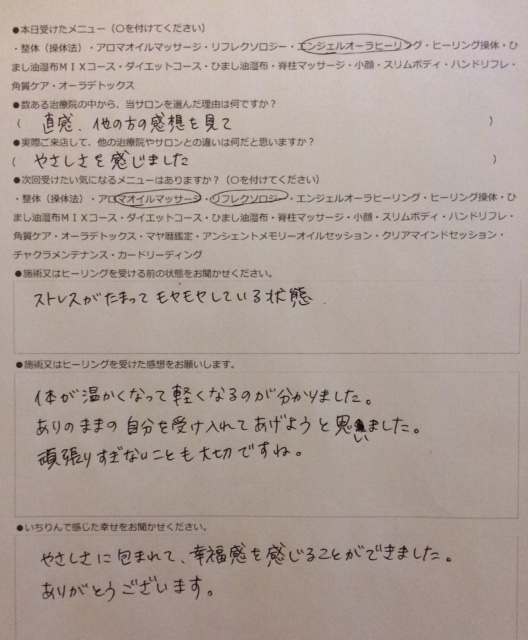 ●本日受けたメニュー（○を付けてください）
・整体（操体法）・アロマオイルマッサージ・リフレクソロジー・エンジェルオーラヒーリング・ヒーリング操体・ひ
まし油湿布ＭＩＸコース・ダイエットコース・ひまし油湿布・脊柱マッサージ・小顔・スリムボディ・ハンドリフレ・
角質ケア・オーラデトックス
●数ある治療院の中から、当サロンを選んだ理由は何ですか？
（ 直感、他の方の感想を見て ）
●実際ご来店して、他の治療院やサロンとの違いは何だと思いますか？
（ やさしさを感じました ）
●次回受けたい気になるメニューはありますか？（○を付けてください）
・整体（操体法）・アロマオイルマッサージ・リフレクソロジー・エンジェルオーラヒーリング・ヒーリング操体・ひ
まし油湿布ＭＩＸコース・ダイエットコース・ひまし油湿布・脊柱マッサージ・小顔・スリムボディ・ハンドリフレ・
角質ケア・オーラデトックス・マヤ暦鑑定・アンシェントメモリーオイルセッション・クリアマインドセッション・
チャクラメンテナンス・カードリーディング
●施術又はヒーリングを受ける前の状態をお聞かせください。
ストレスがたまってモヤモヤしている状態．
●施術又はヒーリングを受けた感想をお願いします。
体が温かくなって軽くなるのが分かりました。
ありのままの自分を受け入れてあげようと思いました。
頑張りすぎないことも大切ですね。
●いちりんで感じた幸せをお聞かせください。
やさしさに包まれて、幸福感を感じることができました。
ありがとうございます。